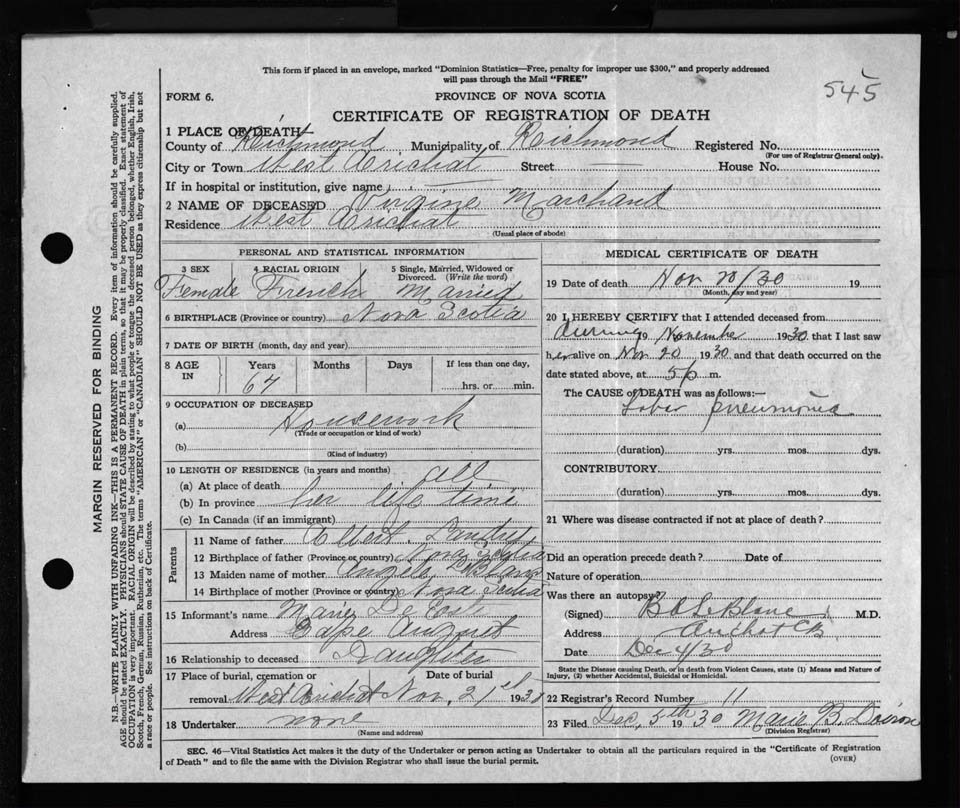 This form if placed in an envelope, marked "Dominion Statistics—Free, penalty for improper use $300," and properly addressed
will pass through the Mail "FREE"
545
FORM 6.
PROVINCE OF NOVA SCOTIA
CERTIFICATE OF REGISTRATION OF DEATH
1 PLACE OF DEATH—
County of Richmond Municipality of Richmond Registered No.
(For use of Registrar General only).
City or Town West Arichat Street House No.
If in hospital or institution, give name
2 NAME OF DECEASED Virgine Marchand
Residence West Arichat
(Usual place of abode)
PERSONAL AND STATISTICAL INFORMATION
3 SEX 4 RACIAL ORIGIN 5 Single, Married, Widowed or
Divorced. (Write the word)
Female French Married
6 BIRTHPLACE (Province or country) Nova Scotia
7 DATE OF BIRTH (month, day and year)
8 AGE IN Years Months Days If less than one day,
67 hrs. or min.
9 OCCUPATION OF DECEASED
(a) Housework
(Trade or occupation or kind of work)
(b)
(Kind of industry)
10 LENGTH OF RESIDENCE (in years and months)
(a) At place of death all
(b) In province her life time
(c) In Canada (if an immigrant)
Parents
11 Name of father Landry
12 Birthplace of father (Province or country) Nova Scotia
13 Maiden name of mother
14 Birthplace of mother (Province or country) Nova Scotia
15 Informant's name Marie
Address Cape August
16 Relationship to deceased Daughter
17 Place of burial, cremation or Date of burial
removal West Arichat Nov, 21st 1930
18 Undertaker none
(Name and address)
MEDICAL CERTIFICATE OF DEATH
19 Date of death Nov 20/30 19
(Month, day and year)
20 I HEREBY CERTIFY that I attended deceased from
During 19 November 1930 that I last saw
her alive on Nov 20 1930 and that death occurred on the
date stated above, at 5 p m.
The CAUSE OF DEATH was as follows:—
Lobar pneumonia
(duration) yrs. mos. dys.
CONTRIBUTORY
(duration) yrs. mos. dys.
21 Where was disease contracted if not at place of death?
Did an operation precede death? Date of
Nature of operation
Was there an autopsy?
(Signed) B A LeBlanc M.D.
Address Arichat CB
Date Dec 4/30
State the Disease causing Death, or in death from Violent Causes, state (1) Means and Nature of
Injury, (2) whether Accidental, Suicidal or Homicidal.
22 Registrar's Record Number 11
23 Filed Dec, 5th 1930 Marie B.
(Division Registrar)
SEC. 46—Vital Statistics Act makes it the duty of the Undertaker or person acting as Undertaker to obtain all the particulars required in the "Certificate of Registration
of Death" and to file the same with the Division Registrar who shall issue the burial permit.
(OVER)
MARGIN RESERVED FOR BINDING
N.B.—WRITE PLAINLY WITH UNFADING INK—THIS IS A PERMANENT RECORD. Every item of information should be carefully supplied.
AGE should be stated EXACTLY. PHYSICIANS should STATE CAUSE OF DEATH in plain terms, so that it may be properly classified. Exact statement of
OCCUPATION is very important. RACIAL ORIGIN will be described by stating to what people or tongue the deceased person belonged, whether English, Irish,
Scotch, French, German, Russian, Ruthenian, etc. The terms "AMERICAN" or "CANADIAN" SHOULD NOT BE USED as they express citizenship but not
a race or people. See instructions on back of Certificate.